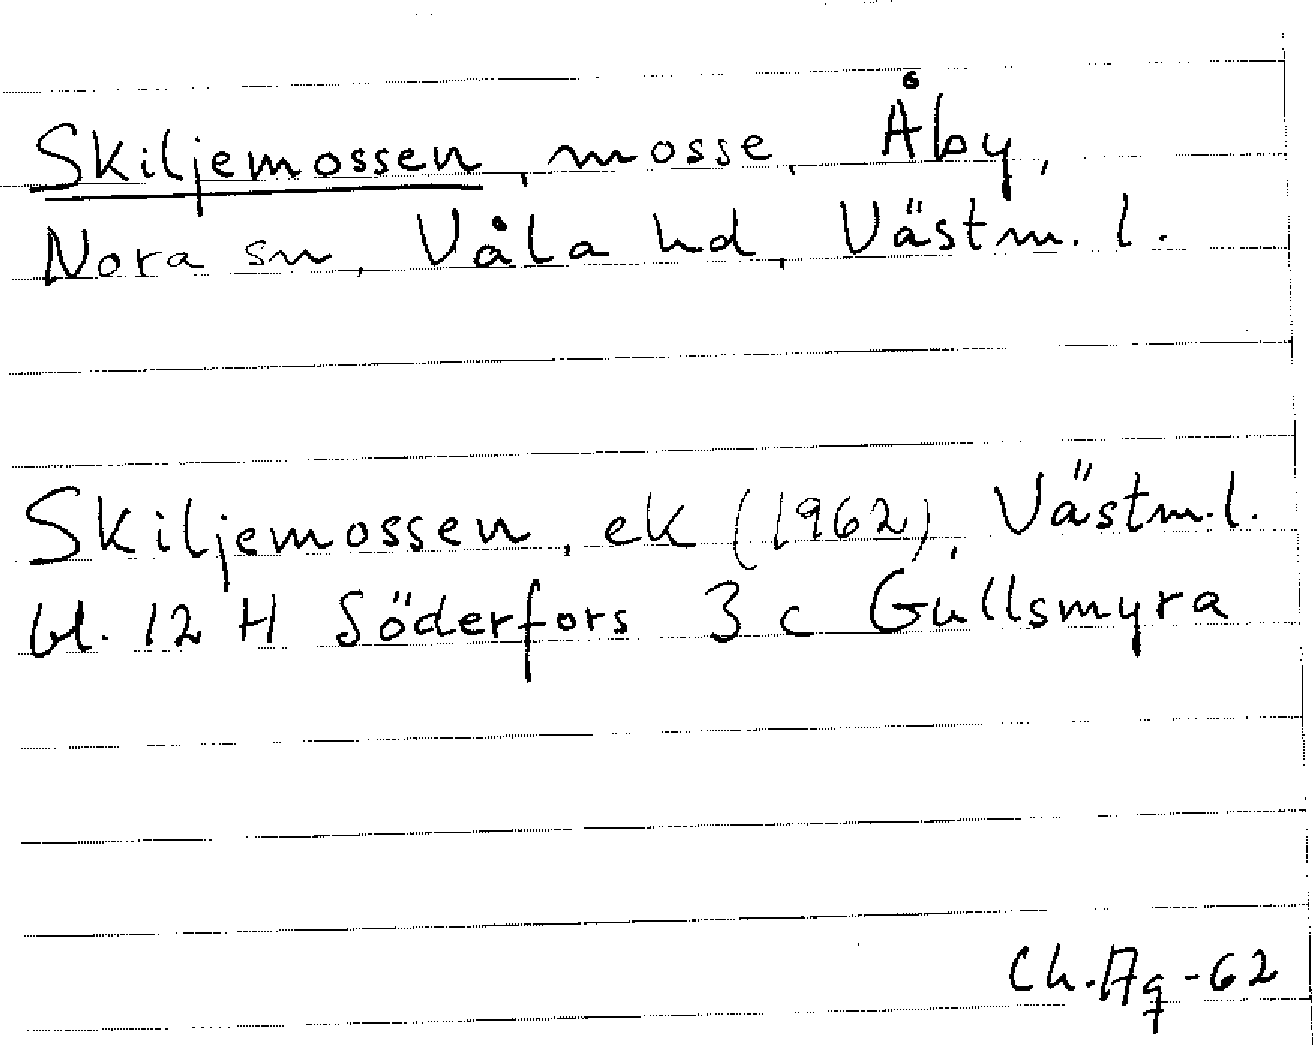 Skiljemossen, mosse, Åby,
Nora sn, Våla hd, Västm. l.
Skiljemossen, ek (1962), Västm.l.
bl. 12 H Söderfors 3 c Gullsmyra
Ch.Aq -62